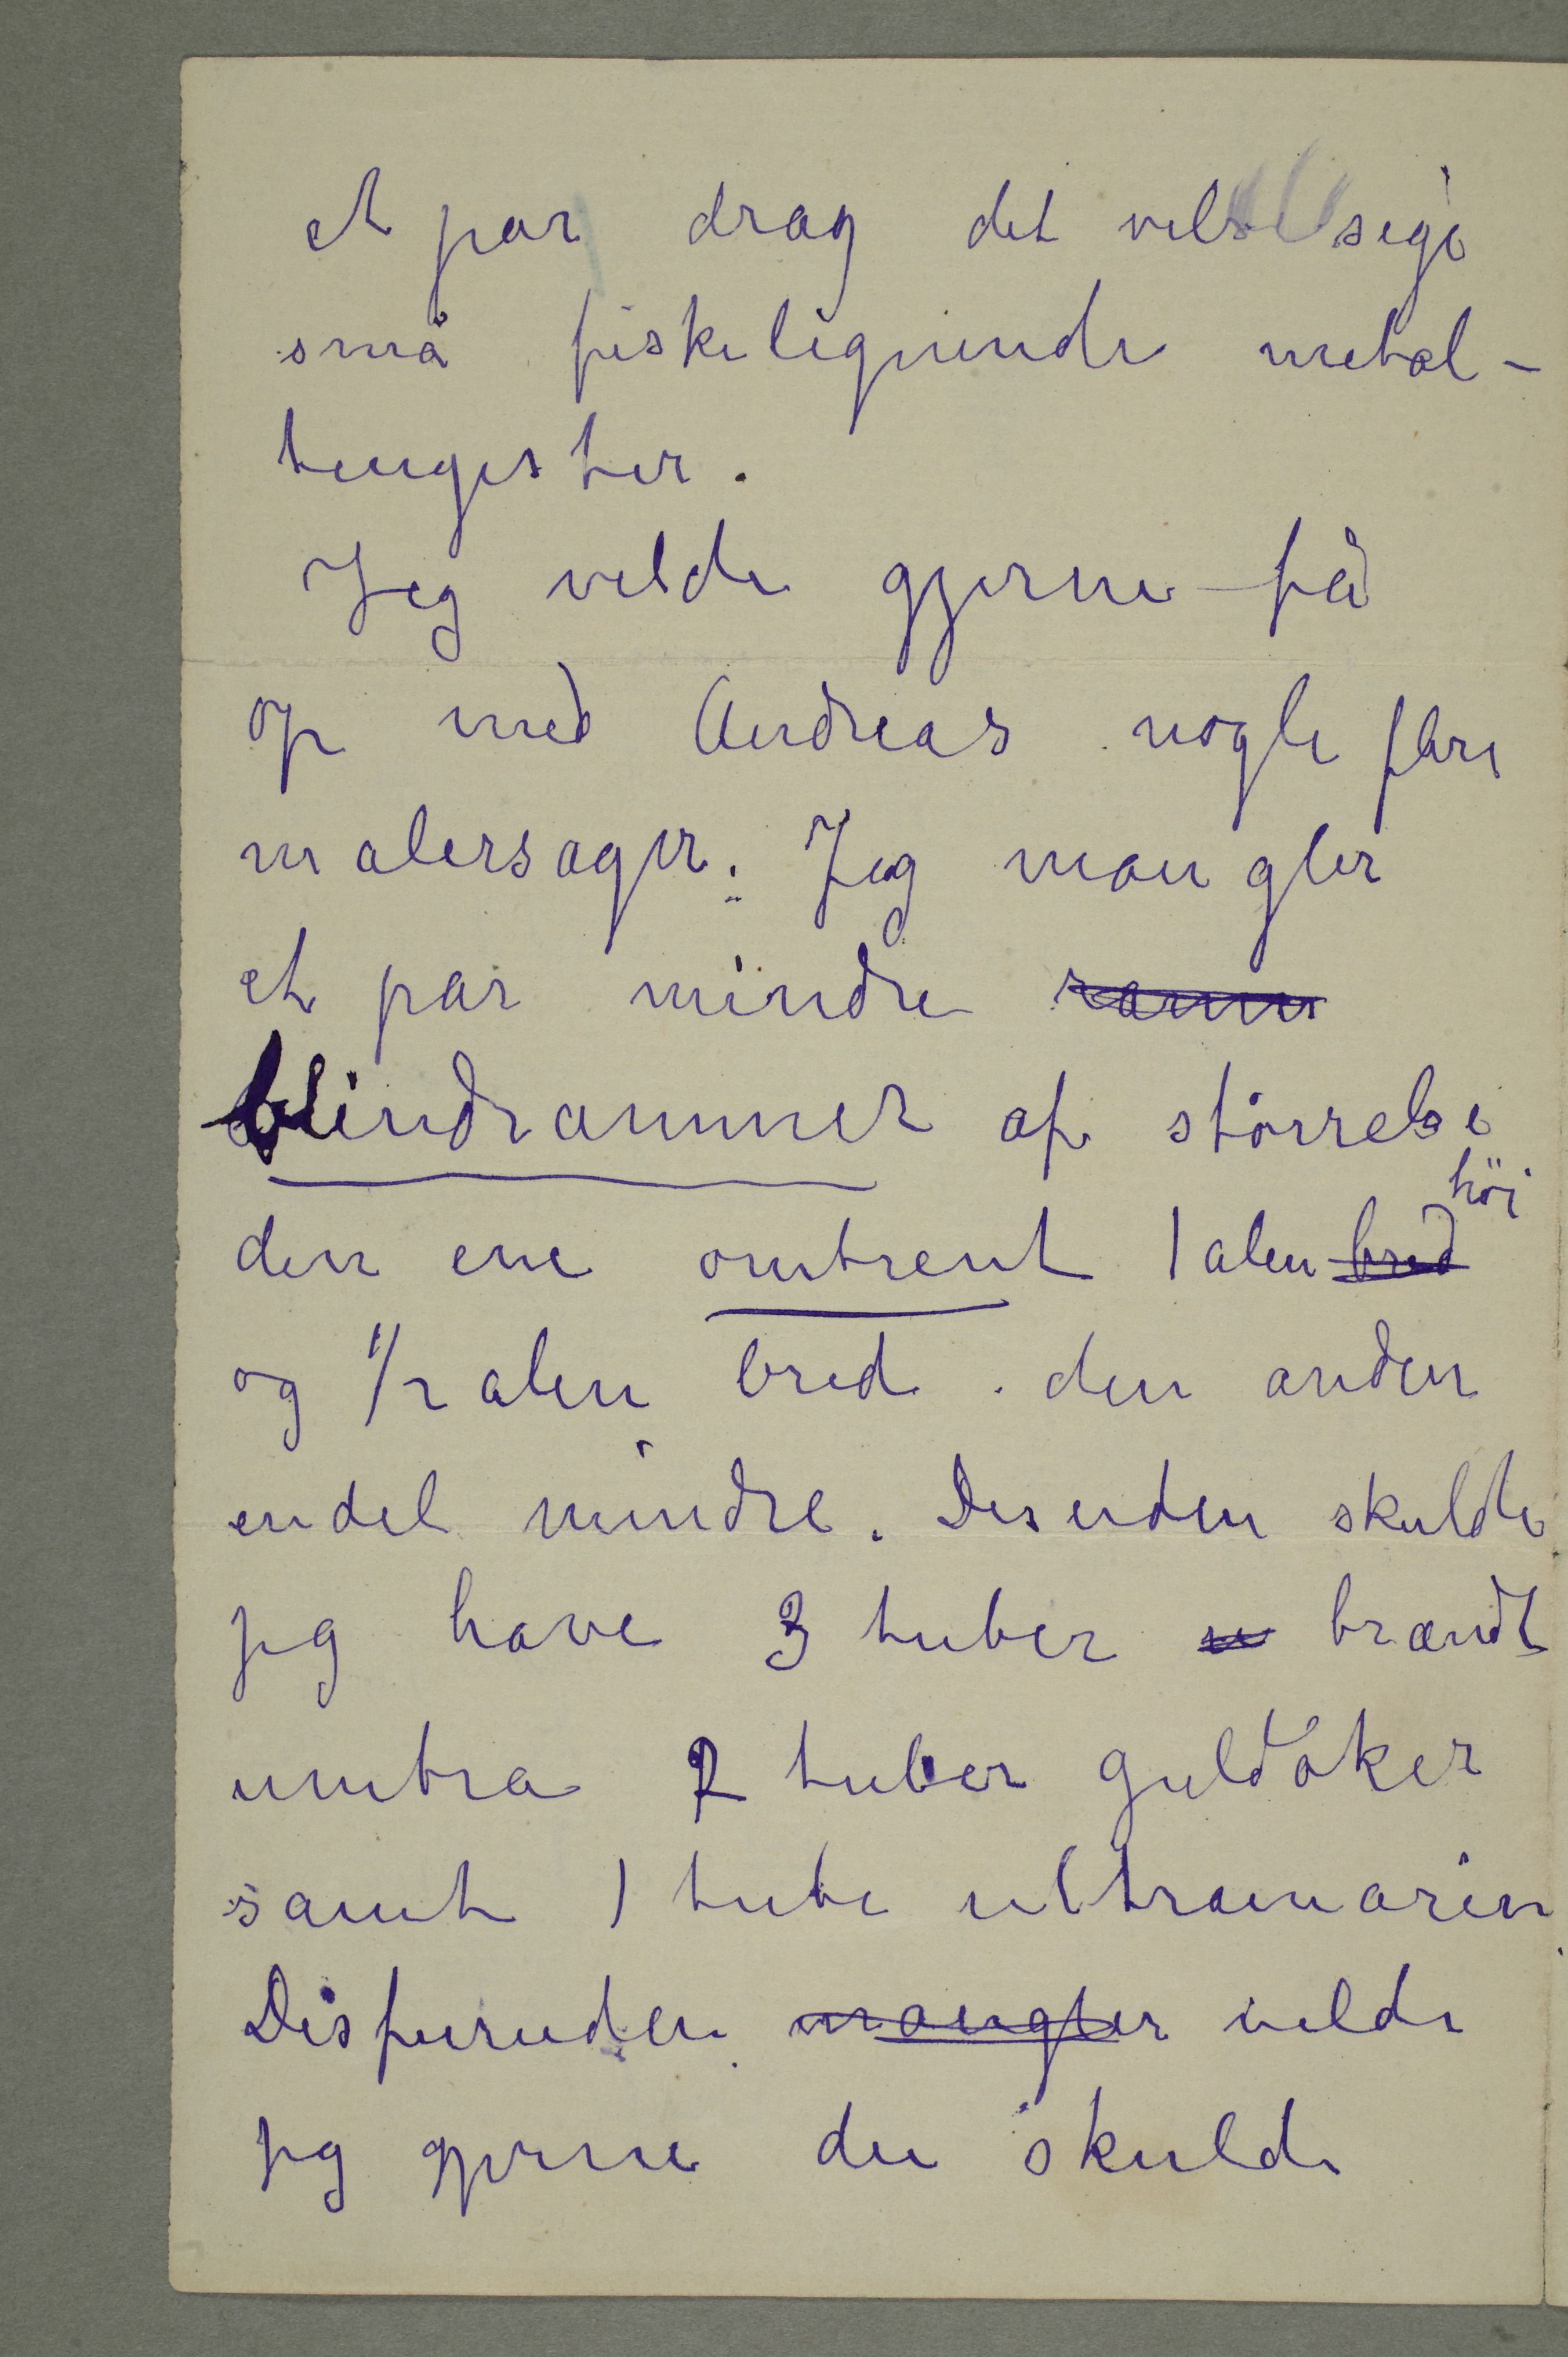 et par drag det vil sige
små fiskelignende metal-
tengester.
Jeg vilde gjerne få
op med Andreas nogle flere
malersager: Jeg mangler
et par mindre ramer
blindrammer af størrelse
den ene omtrent 1 alen bred höi
og 1/2 alen bred. den anden
endel mindre. Desuden skulde
jeg have 3 tuber u brændt
umbra 2 tuber guldoker
samt 1 tube ultramarin.
Disforuden mangler vilde
jeg gjerne du skulde